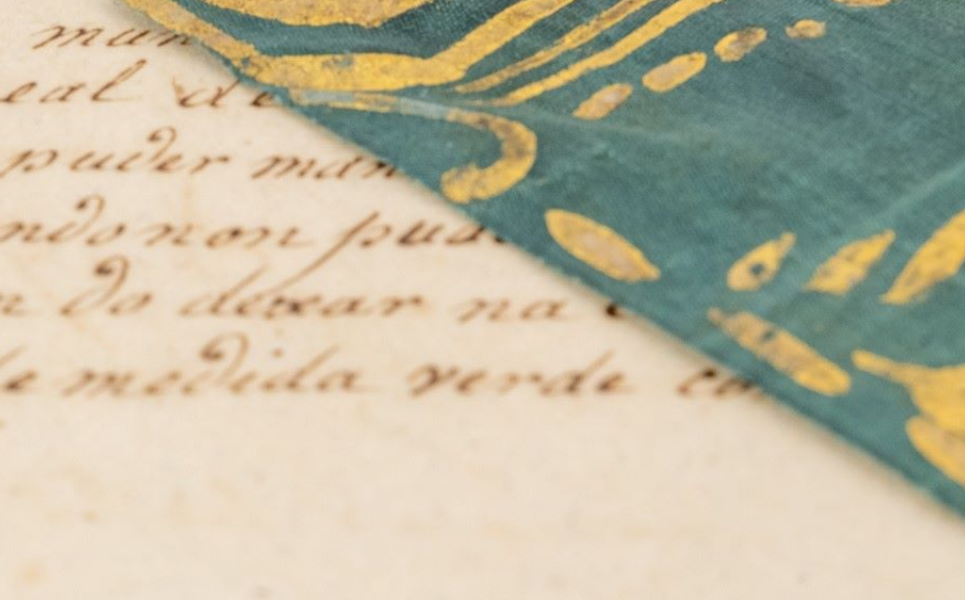 mun
eal de
puder man
ndo non pud
n do dexar na
de medida verde co